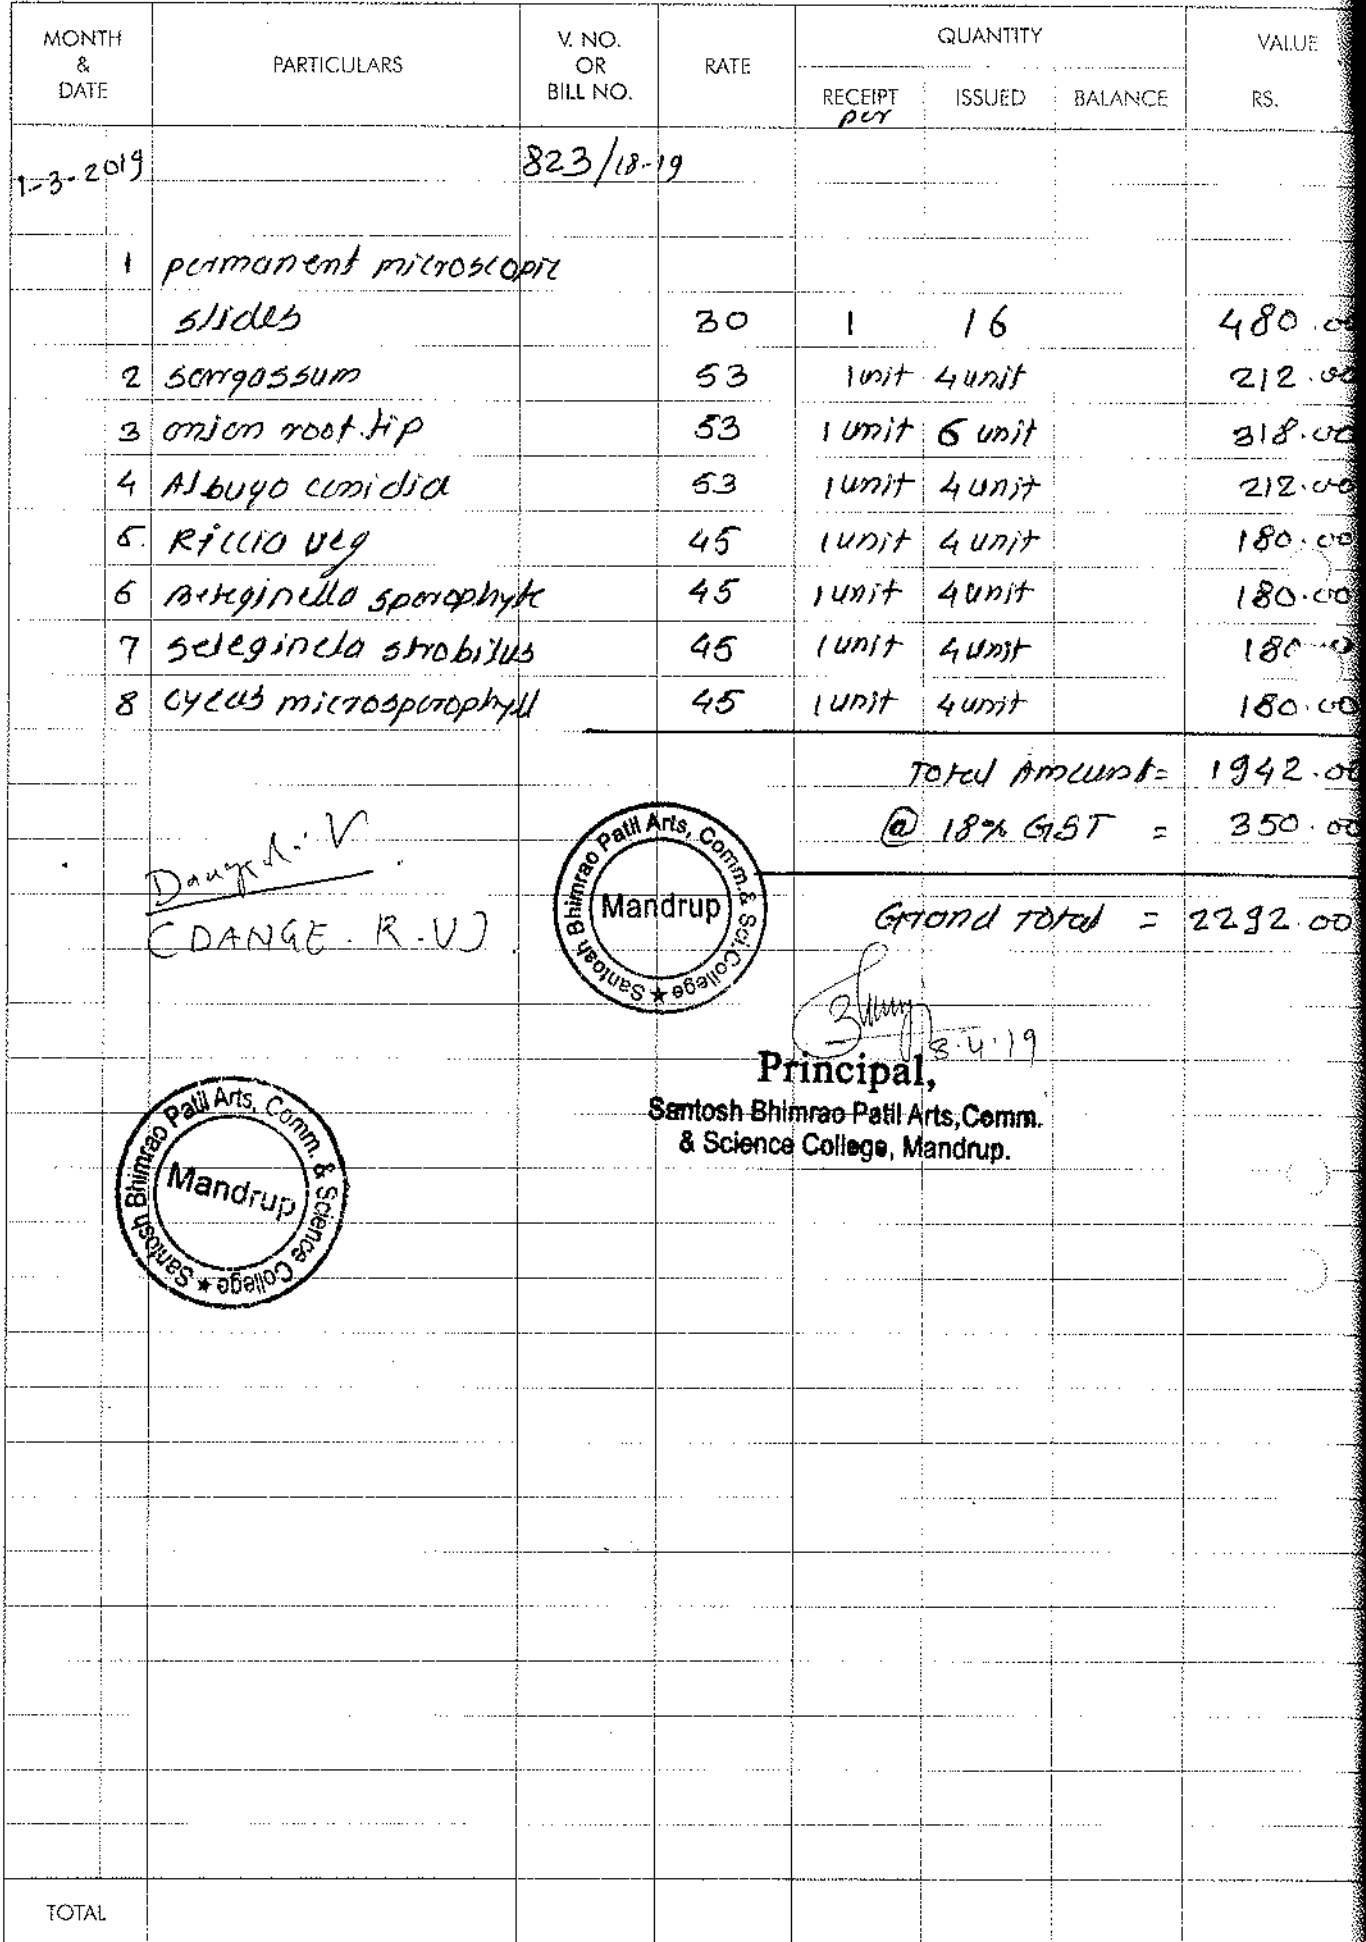 MONTH & DATE PARTICULARS V. NO. OR BILL NO. RATE QUANTITY VALUE
RECEIPT ISSUED BALANCE RS.
per
1-3-2019 823/18-19
1 permanent microscopic
slides 30 1 16 480.00
2 sargassum 53 1unit 4unit 212.00
3 onion root tip 53 1unit 6 unit 318.00
4 Albugo conidia 53 1unit 4unit 212.00
5. Riccia veg 45 1unit 4unit 180.00
6 sporophyte 45 1unit 4unit 180.00
7 seleginela strobilus 45 1unit 4unit 180
8 cycas microsporophyll 45 1unit 4unit 180.00
Total Amount= 1942.00
@ 18% GST = 350.00
Grand Total = 2292.00
(DANGE. R.V)
Santosh Bhimrao Patil Arts, Comm.& Sci.College ★
Mandrup
3.4.19
Principal,
Santosh Bhimrao Patil Arts,Comm.
& Science College, Mandrup.
Santosh Bhimrao Patil Arts, Comm. & Science College ★
Mandrup
TOTAL